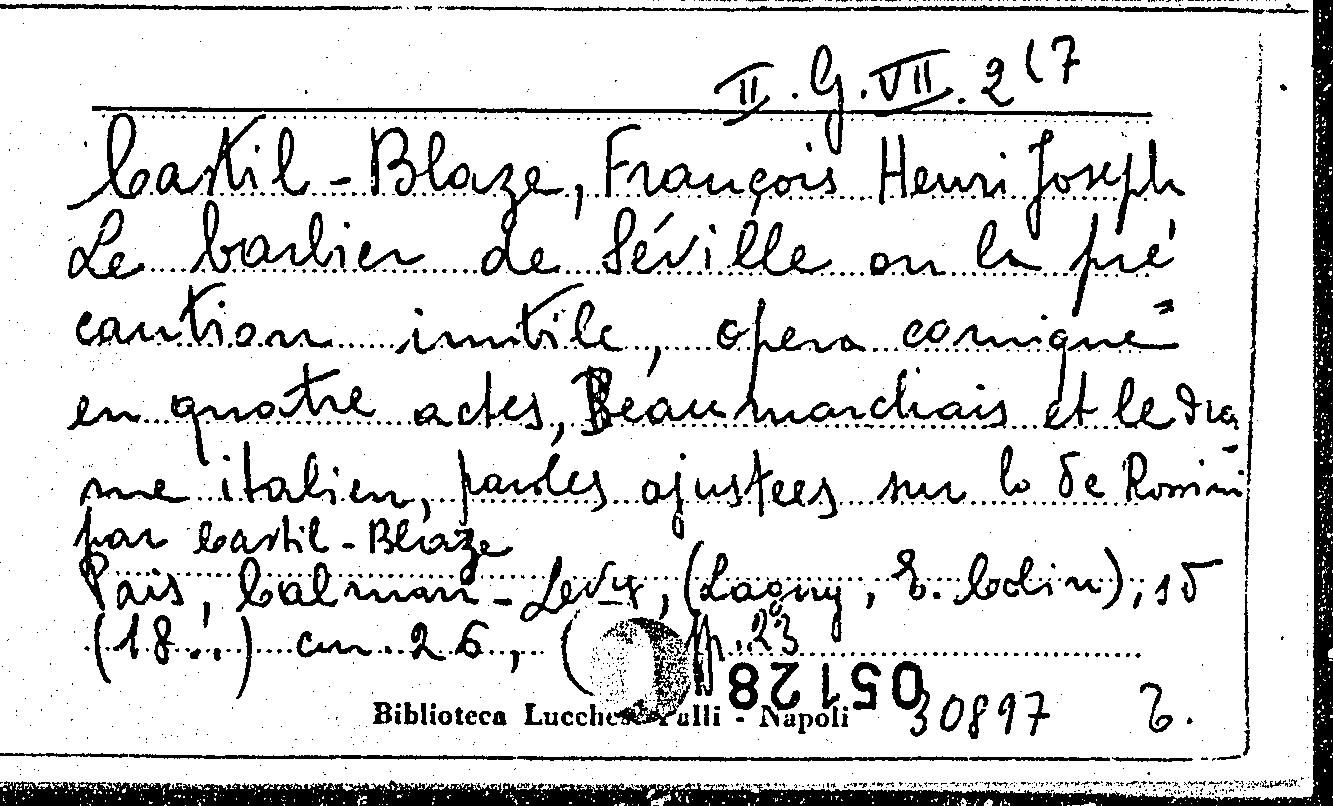 II. G. VII. 2 (7
Castil-Blaze, François Henri Joseph
Le barbier de Séville ou la pré
caution inutile, opera comique
en quatre actes, Beaumarchais et le dra
me italien, paroles ajustees sur le de Rossini
par Castil-Blaze
Pais, Calman-Levy, (Lagny, E. Colin), sd
(18..) cm. 26, ( pp. 23
05128
Biblioteca Lucchesi Palli - Napoli 30897